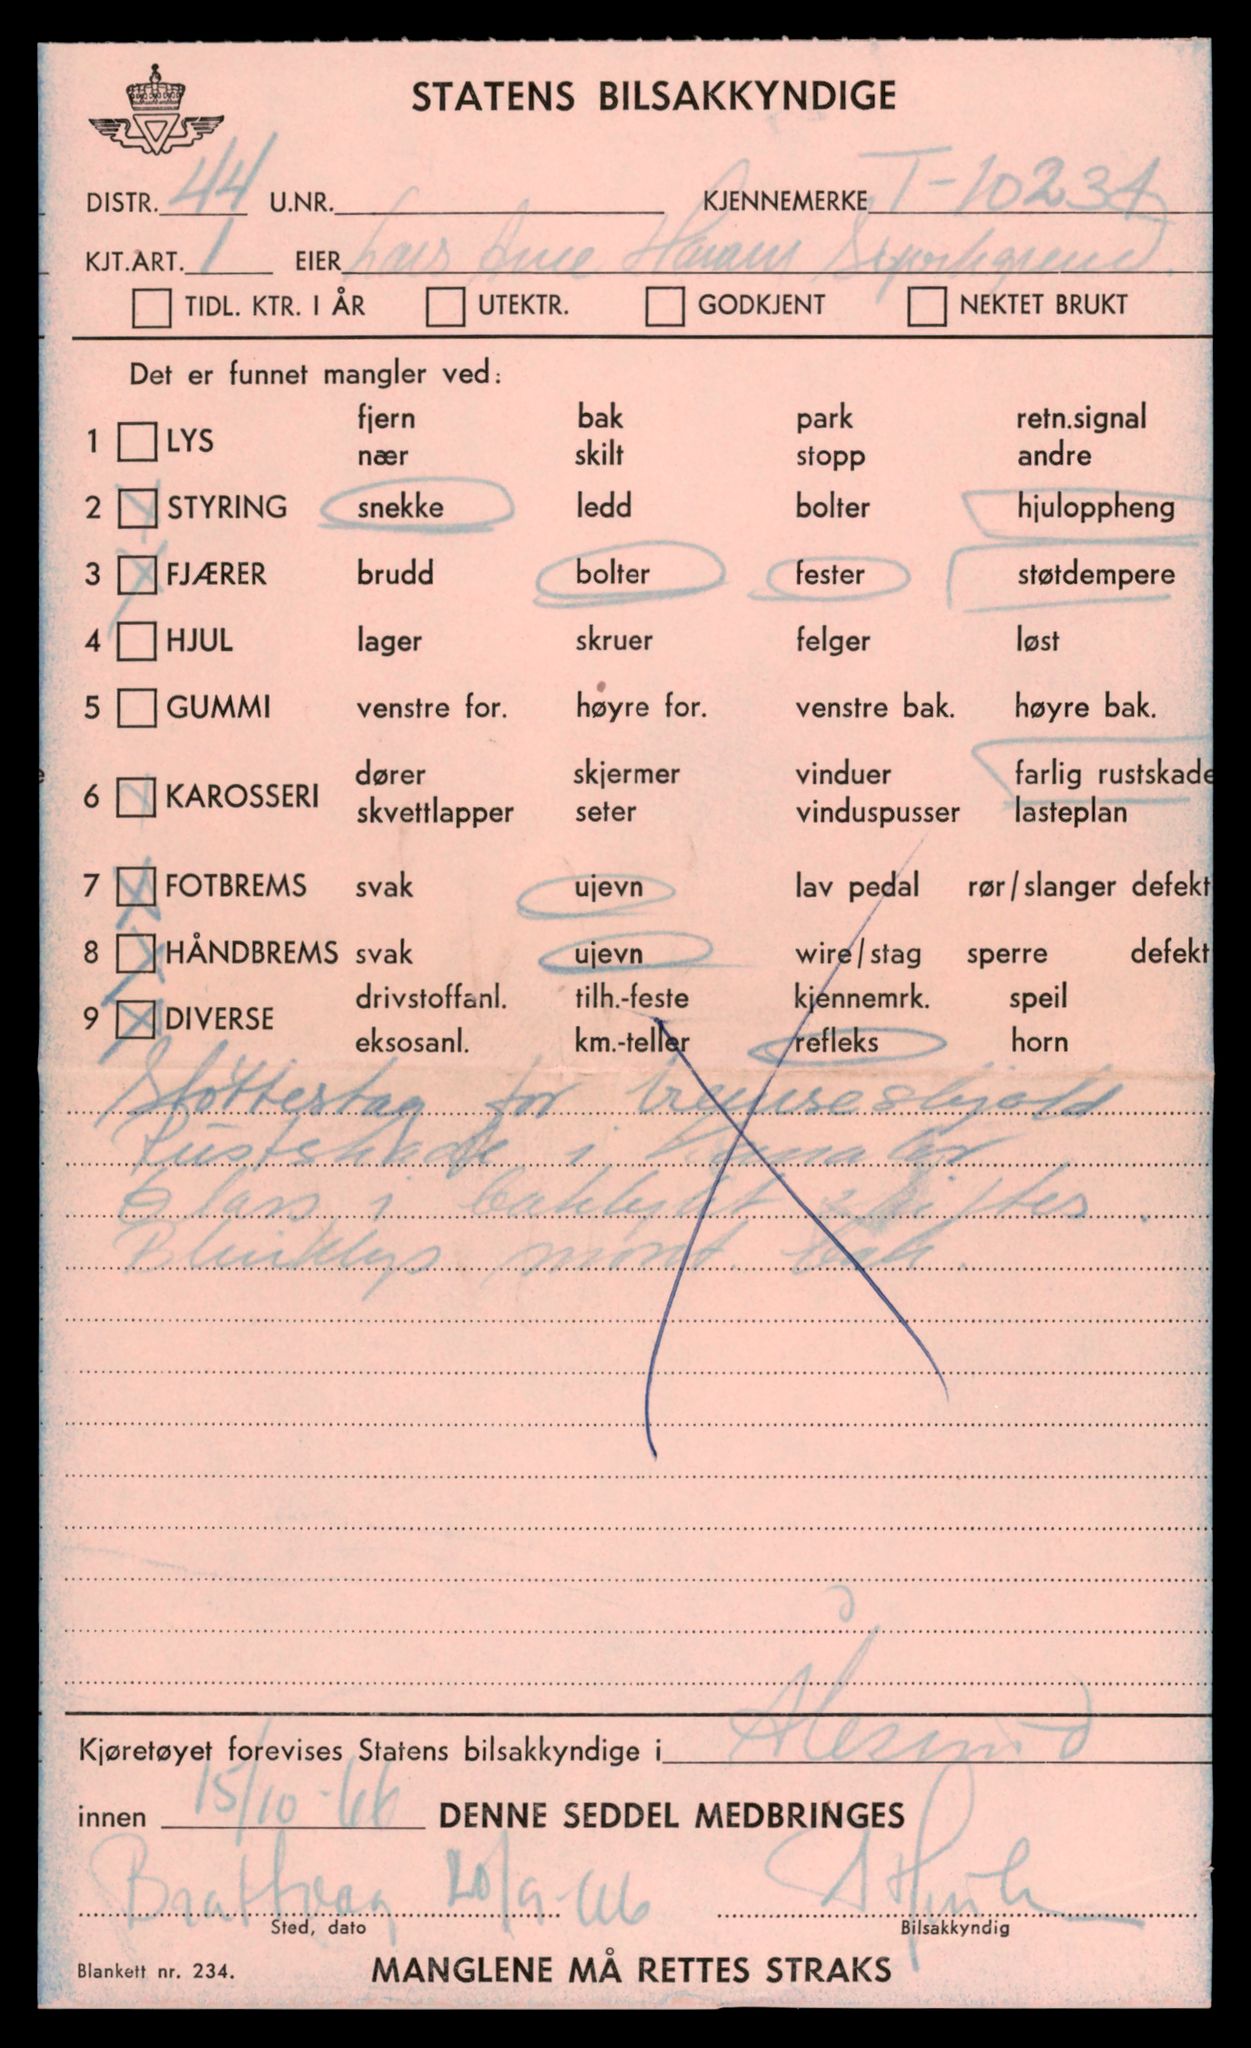 STATENS BILSAKKYNDIGE
DISTR. 44 U.NR. KJENNEMERKE T-10234
KJT.ART. 1 EIER Lars Arne
TIDL. KTR. I ÅR UTEKTR. GODKJENT NEKTET BRUKT
Det er funnet mangler ved:
1 LYS fjern bak park retn.signal
nær skilt stopp andre
2 STYRING snekke ledd bolter hjuloppheng
3 FJÆRER brudd bolter fester støtdempere
4 HJUL lager skruer felger løst
5 GUMMI venstre for. høyre for. venstre bak. høyre bak.
6 KAROSSERI dører skjermer vinduer farlig rustskade
skvettlapper seter vinduspusser lasteplan
7 FOTBREMS svak ujevn lav pedal rør/slanger defekt
8 HÅNDBREMS svak ujevn wire/stag sperre defekt
9 DIVERSE drivstoffanl. tilh.-feste kjennemrk. speil
eksosanl. km.-teller refleks horn
Støttestag for bremseskjold
Rustskade i kanaler
Glass i baklykt skiftes.
Blinklys mont. bak.
Kjøretøyet forevises Statens bilsakkyndige i Ålesund
innen 15/10-66 DENNE SEDDEL MEDBRINGES
Brattvaag 20/9-66
Sted, dato Bilsakkyndig
Blankett nr. 234. MANGLENE MÅ RETTES STRAKS